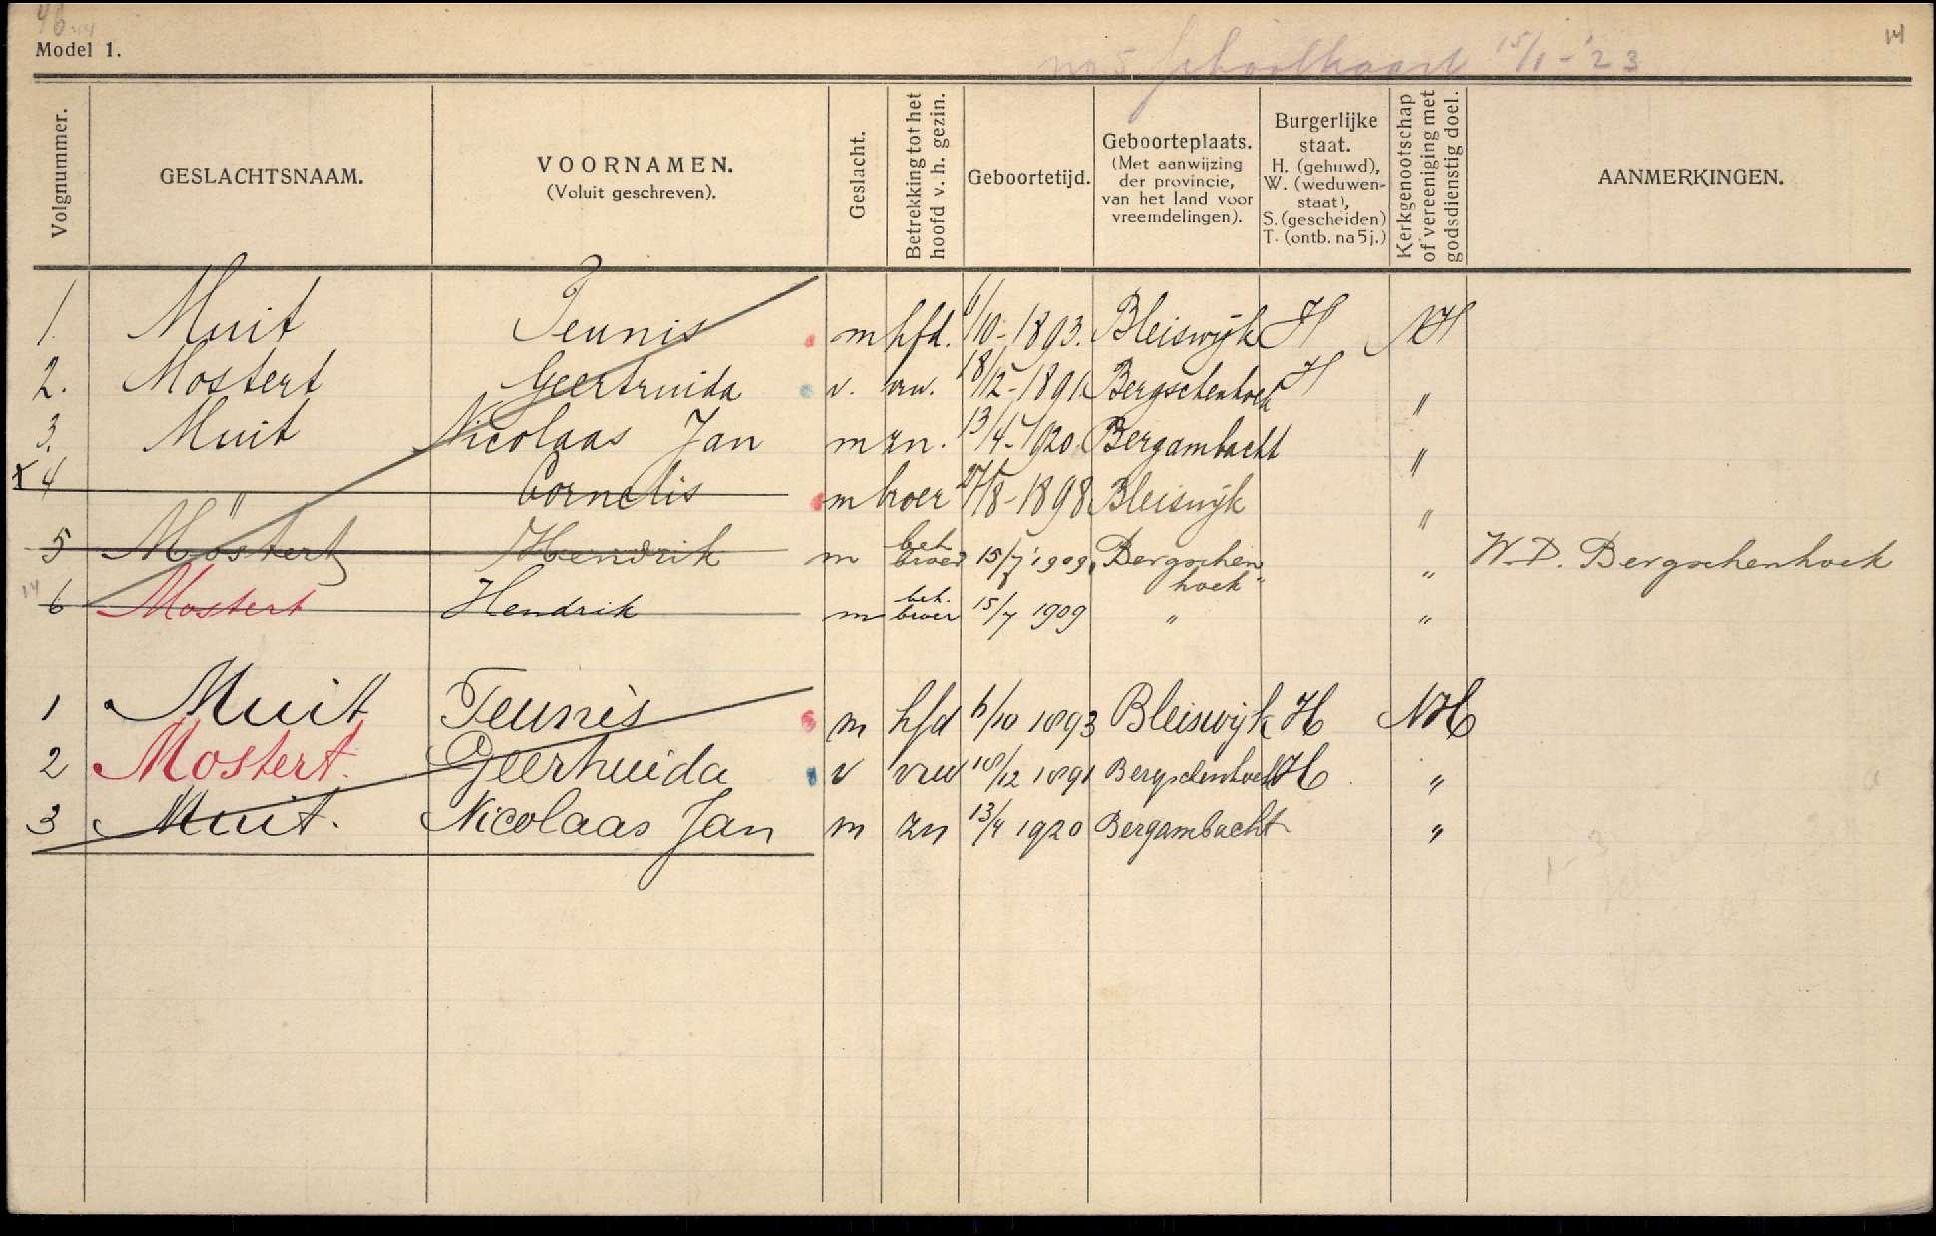 46
Model 1.
no 5 Schoolkaart 15/1-'23
14
Volgnummer.
GESLACHTSNAAM.
VOORNAMEN.
(Voluit geschreven).
Geslacht.
Betrekking tot het
hoofd v. h. gezin.
Geboortetijd.
Geboorteplaats.
(Met aanwijzing
der provincie,
van het land voor
vreemdelingen).
Burgerlijke
staat.
H. (gehuwd),
W. (weduwen-
staat),
S. (gescheiden)
T. (ontb. na 5 j.)
Kerkgenootschap
of vereeniging met
godsdienstig doel.
AANMERKINGEN.
1. Muit Teunis m hfd. 6/10-1893. Bleiswijk H NH
2. Mostert Geertruida v. vrw. 18/12-1891 Bergschenhoek H "
3. Muit Nicolaas Jan m zn. 13/4-1920. Bergambacht "
x 4 " Cornelis m broer 27/8-1898 Bleiswijk "
5 Mostert Hendrik m beh. broer 15/7 1909. Bergschenhoek " W.D. Bergschenhoek
14
6 Mostert Hendrik m beh. broer 15/7 1909 " "
1 Muit Teunis m hfd 6/10 1893 Bleiswijk H NH
2 Mostert. Geertruida v vrw 18/12 1891 Bergschenhoek H "
3 Muit. Nicolaas Jan m zn 13/4 1920 Bergambacht "
1-3